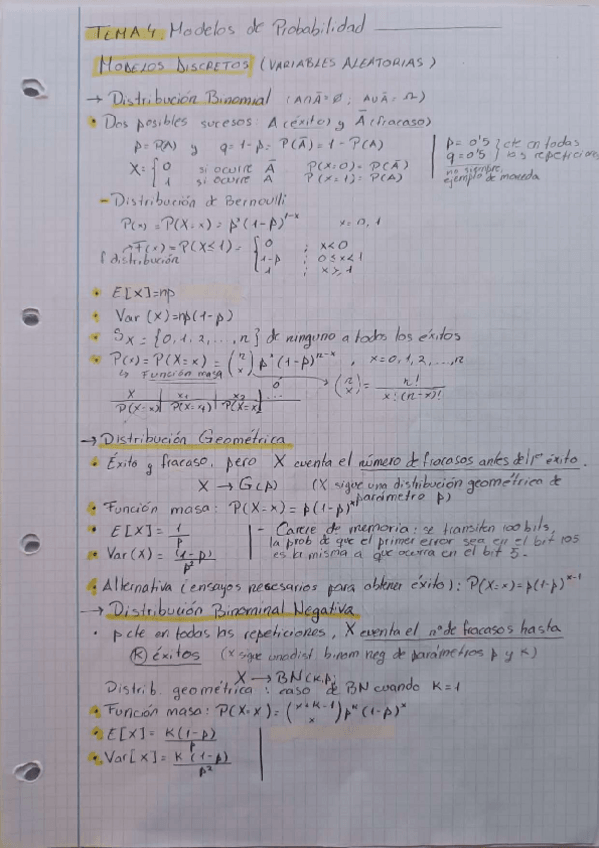 TEMA 4. Modelos de Probabilidad
MODELOS DISCRETOS (VARIABLES ALEATORIAS)
→ Distribución Binomial (A∩Ā=Ø; A∪Ā=Ω)
• Dos posibles sucesos: A (éxito) y Ā (fracaso)
p = P(A) y q = 1-p = P(Ā) = 1-P(A)
X = { 0 si ocurre Ā P(X=0) = P(Ā)
1 si ocurre A P(X=1) = P(A)
p = 0'5 } cte en todas
q = 0'5 } las repeticiones
no siempre,
ejemplo de moneda
- Distribución de Bernouilli
P(x) = P(X=x) = p^x (1-p)^1-x x = 0, 1
→ F(x) = P(X≤1) = { 0 ; x<0
f distribución 1-p ; 0≤x<1
1 ; x≥1
• E[X]=np
• Var(X)=np(1-p)
• Sx = {0, 1, 2, ..., n} de ninguno a todos los éxitos
• P(x) = P(X=x) = (n x) p^x (1-p)^n-x , x=0, 1, 2, ..., n
↳ Función masa
ó → (n x) = n! / x!(n-x)!
X | x1 | x2 | ...
P(X=x) | P(X=x1) | P(X=x2)
→ Distribución Geométrica
• Éxito y fracaso, pero X cuenta el número de fracasos antes del 1er éxito.
X → G(p) (X sigue una distribución geométrica de
parámetro p)
• Función masa: P(X=x) = p(1-p)^x
• E[X] = 1/p
• Var(X) = (1-p)/p²
- Carece de memoria: se transiten 100 bits,
la prob de que el primer error sea en el bit 105
es la misma a que ocurra en el bit 5.
• Alternativa (ensayos necesarios para obtener éxito): P(X=x)=p(1-p)^x-1
→ Distribución Binominal Negativa
• p cte en todas las repeticiones, X cuenta el nº de fracasos hasta
(K) éxitos (X sigue una dist binom neg de parámetros p y K)
X → BN(K,p)
Distrib. geométrica: caso de BN cuando K=1
• Función masa: P(X=x) = (x+K-1 x) p^K (1-p)^x
• E[X] = K(1-p)/p
• Var[X] = K(1-p)/p²